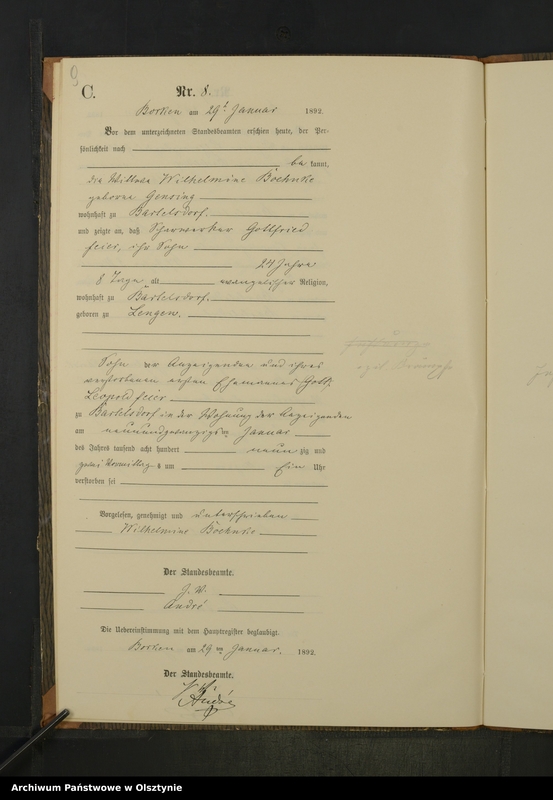 9
C.
Nr. 8.
Borken am 29t Januar 1892.
Vor dem unterzeichneten Standesbeamten erschien heute, der Per-
sönlichkeit nach
be kannt,
die Wittwe Wilhelmine Boehnke
geborne Gensing
wohnhaft zu Bartelsdorf.
und zeigte an, daß Scharwerker Gottfried
Feier, ihr Sohn
24 Jahre
8 Tage alt evangelischer Religion,
wohnhaft zu Bartelsdorf.
geboren zu Lengen.
Sohn der Anzeigenden und ihres
verstorbenen ersten Ehemannes Gottl.
Leopold Feier
zu Bartelsdorf in der Wohnung der Anzeigenden
am neunundzwanzigsten Januar
des Jahres tausend acht hundert neun zig und
zwei Vormittags um Ein Uhr
verstorben sei
Vorgelesen, genehmigt und unterschrieben
Wilhelmine Boehnke
Der Standesbeamte.
J. V.
André
Die Uebereinstimmung mit dem Hauptregister beglaubigt.
Borken am 29ten Januar. 1892.
Der Standesbeamte.
André
Archiwum Państwowe w Olsztynie